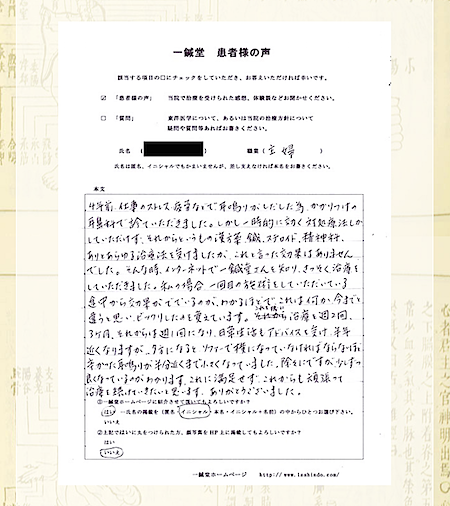 一鍼堂 患者様の声
該当する項目の口にチェックをしていただき、お答えいただければ幸いです。
☑ 「患者様の声」 当院で治療を受けられた感想、体験談などお聞かせください。
□ 「質問」 東洋医学について、あるいは当院の治療方針について
疑問や質問等あればお書きください。
氏名 ( ) 職業 ( 主婦 )
氏名は匿名、イニシャルでもかまいませんが、差し支えなければ本名をお書きください。
本文
4年前、仕事のストレス、疲労などで耳鳴りがしだした為、かかりつけの
耳鼻科で診ていただきました。しかし一時的に効く対処療法しか
していただけず、それからというもの漢方薬、鍼、ステロイド、精神科、
ありとあらゆる治療法を受けましたが、これと言った効果はありません
でした。そんな時、インターネットで一鍼堂さんを知り、さっそく治療を
していただきました。私の場合、一回目の施術をしていただいている
途中から効果がでているのが、わかるほどで、これは何か、今までと
違うと思い、ビックリしたのを覚えています。それから治療を週2回、
3ヶ月、それからは週1回になり、日常生活もアドバイスを受け、半年
近くなりますが、夕方になるとソファーで横になっていなければならないほど
辛かった耳鳴りが半分近くまで小さくなっていました。除々にですが、少しずつ
良くなっているのがわかります。これに満足せず、これからも頑張って
治療を続けていきたいと思います。ありがとうございました。
①一鍼堂ホームページに紹介させて頂いてもよろしいですか?
はい ―氏名の掲載を(匿名・イニシャル・本名・イニシャル+名前)の中からひとつお選び下さい。
いいえ
②上記ではいに丸をつけられた方、顔写真をHP上に掲載してもよろしいですか?
はい
いいえ
一鍼堂ホームページ http://www.isshindo.com/